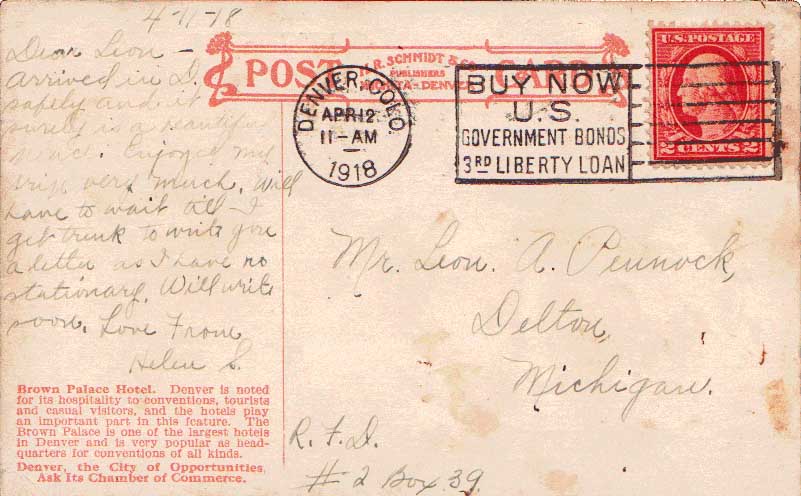 4-11-18
Dear Leon -
Arrived in D.
safely and it
surely is a beauty
Enjoyed my
trip very much. Will
have to wait till I
get trunk to write you
a letter as I have no
stationary. Will write
soon. Love From
Helen S.
POST CARD
R. SCHMIDT &
PUBLISHERS
DENVER
DENVER, COLO.
APR 12
11-AM
1918
BUY NOW
U.S.
GOVERNMENT BONDS
3RD LIBERTY LOAN
U.S. POSTAGE
2 CENTS 2
Mr. Leon. A. Pennock,
Delton,
Michigan.
R. F. D.
#2 Box 39
Brown Palace Hotel. Denver is noted
for its hospitality to conventions, tourists
and casual visitors, and the hotels play
an important part in this feature. The
Brown Palace is one of the largest hotels
in Denver and is very popular as head-
quarters for conventions of all kinds.
Denver, the City of Opportunities,
Ask Its Chamber of Commerce.